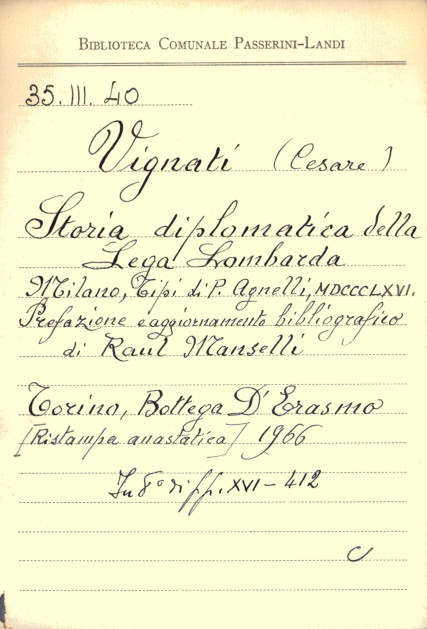 BIBLIOTECA COMUNALE PASSERINI-LANDI
35. III. 40
Vignati (Cesare)
Storia diplomatica della
Lega Lombarda
Milano, Tipi di P. Agnelli, MDCCCLXVI.
Prefazione e aggiornamento bibliografico
di Raul Manselli
Torino, Bottega D'Erasmo
[Ristampa anastatica] 1966
In 8° di pp. XVI - 412
C